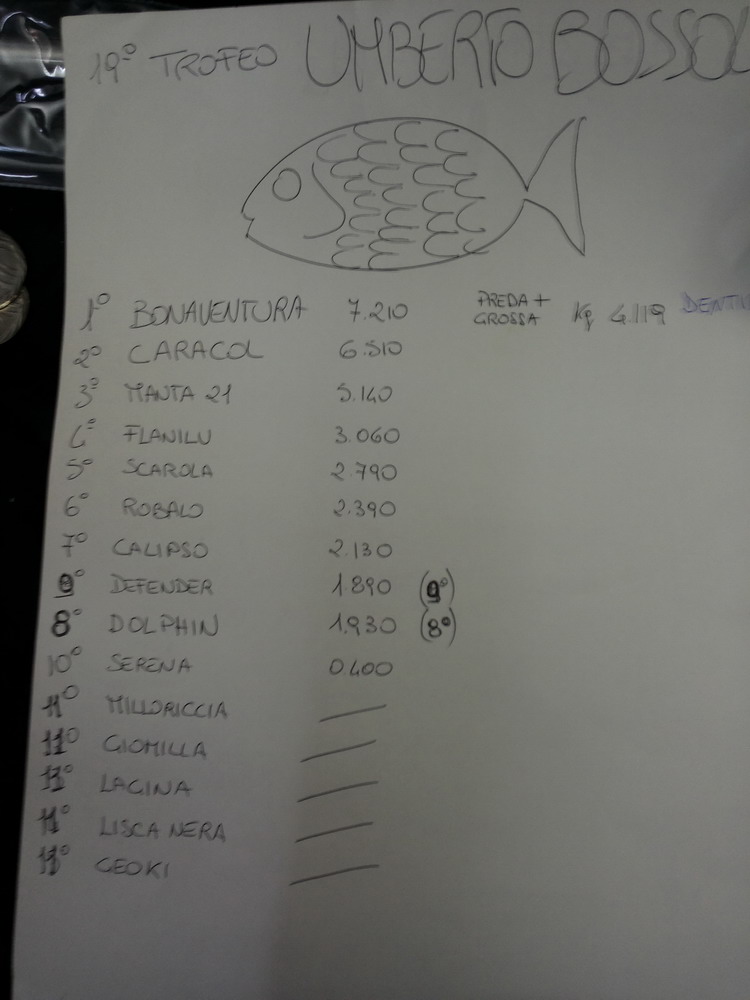 19° TROFEO UMBERTO BOSSOL
1° BONAVENTURA 7.210 PREDA + GROSSA Kg 4.119 DENTI
2° CARACOL 6.510
3° MANTA 21 5.140
4° FLANILU 3.060
5° SCAROLA 2.790
6° ROBALO 2.390
7° CALIPSO 2.130
9° DEFENDER 1.890 (9°)
8° DOLPHIN 1.930 (8°)
10° SERENA 0.400
11° MILLORICCIA
11° GIOMILLA
11° LAGINA
11° LISCA NERA
11° GEOKI